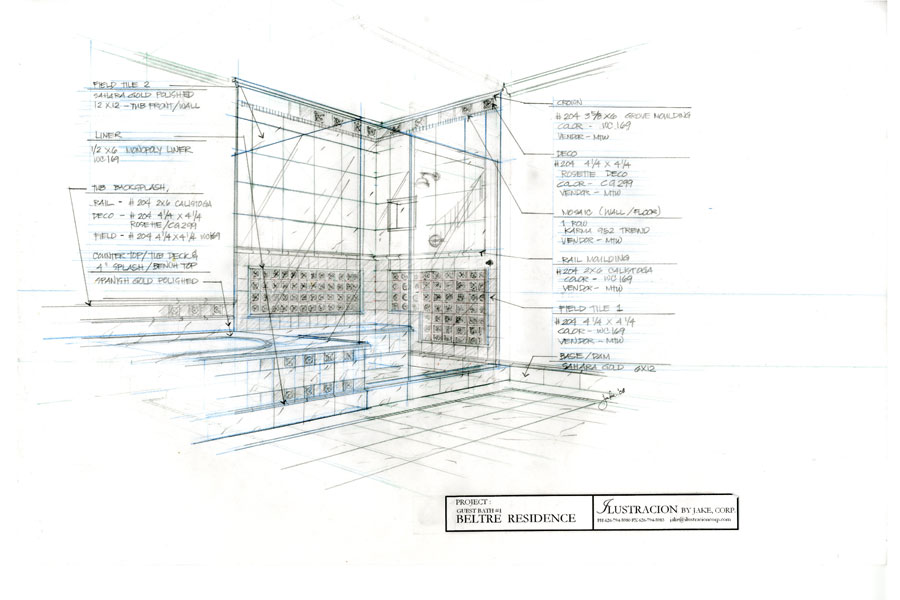 FIELD TILE 2
SAHARA GOLD POLISHED
12 X12 - TUB FRONT/WALL
LINER
1/2 X6 MONOPOLY LINER
WC169
TUB BACKSPLASH,
RAIL - # 204 2X6 CALISTOGA
DECO - # 204 4 1/4 X 4 1/4
ROSETTE/CG299
FIELD - # 204 4 1/4 X 4 1/4 WC169
COUNTER TOP/ TUB DECK &
4" SPLASH / BENCH TOP
SPANISH GOLD POLISHED
CROWN
# 204 3 3/8 X6 GROVE MOULDING
COLOR - WC169
VENDOR - MTW
DECO
#204 4 1/4 X 4 1/4
ROSETTE DECO
COLOR - CG299
VENDOR - MTW
MOSAIC (WALL/FLOOR)
1 ROW
KARMA 962 TREIND
VENDOR - MTW
RAIL MOULDING
#204 2X6 CALISTOGA
COLOR - WC169
VENDOR - MTW
FIELD TILE 1
#204 4 1/4 X 4 1/4
COLOR - WC169
VENDOR - MTW
BASE/DAM
SAHARA GOLD 6X12
PROJECT :
GUEST BATH #1
BELTRE RESIDENCE
ILUSTRACION BY JAKE, CORP.
jake@ilustracioncorp.com